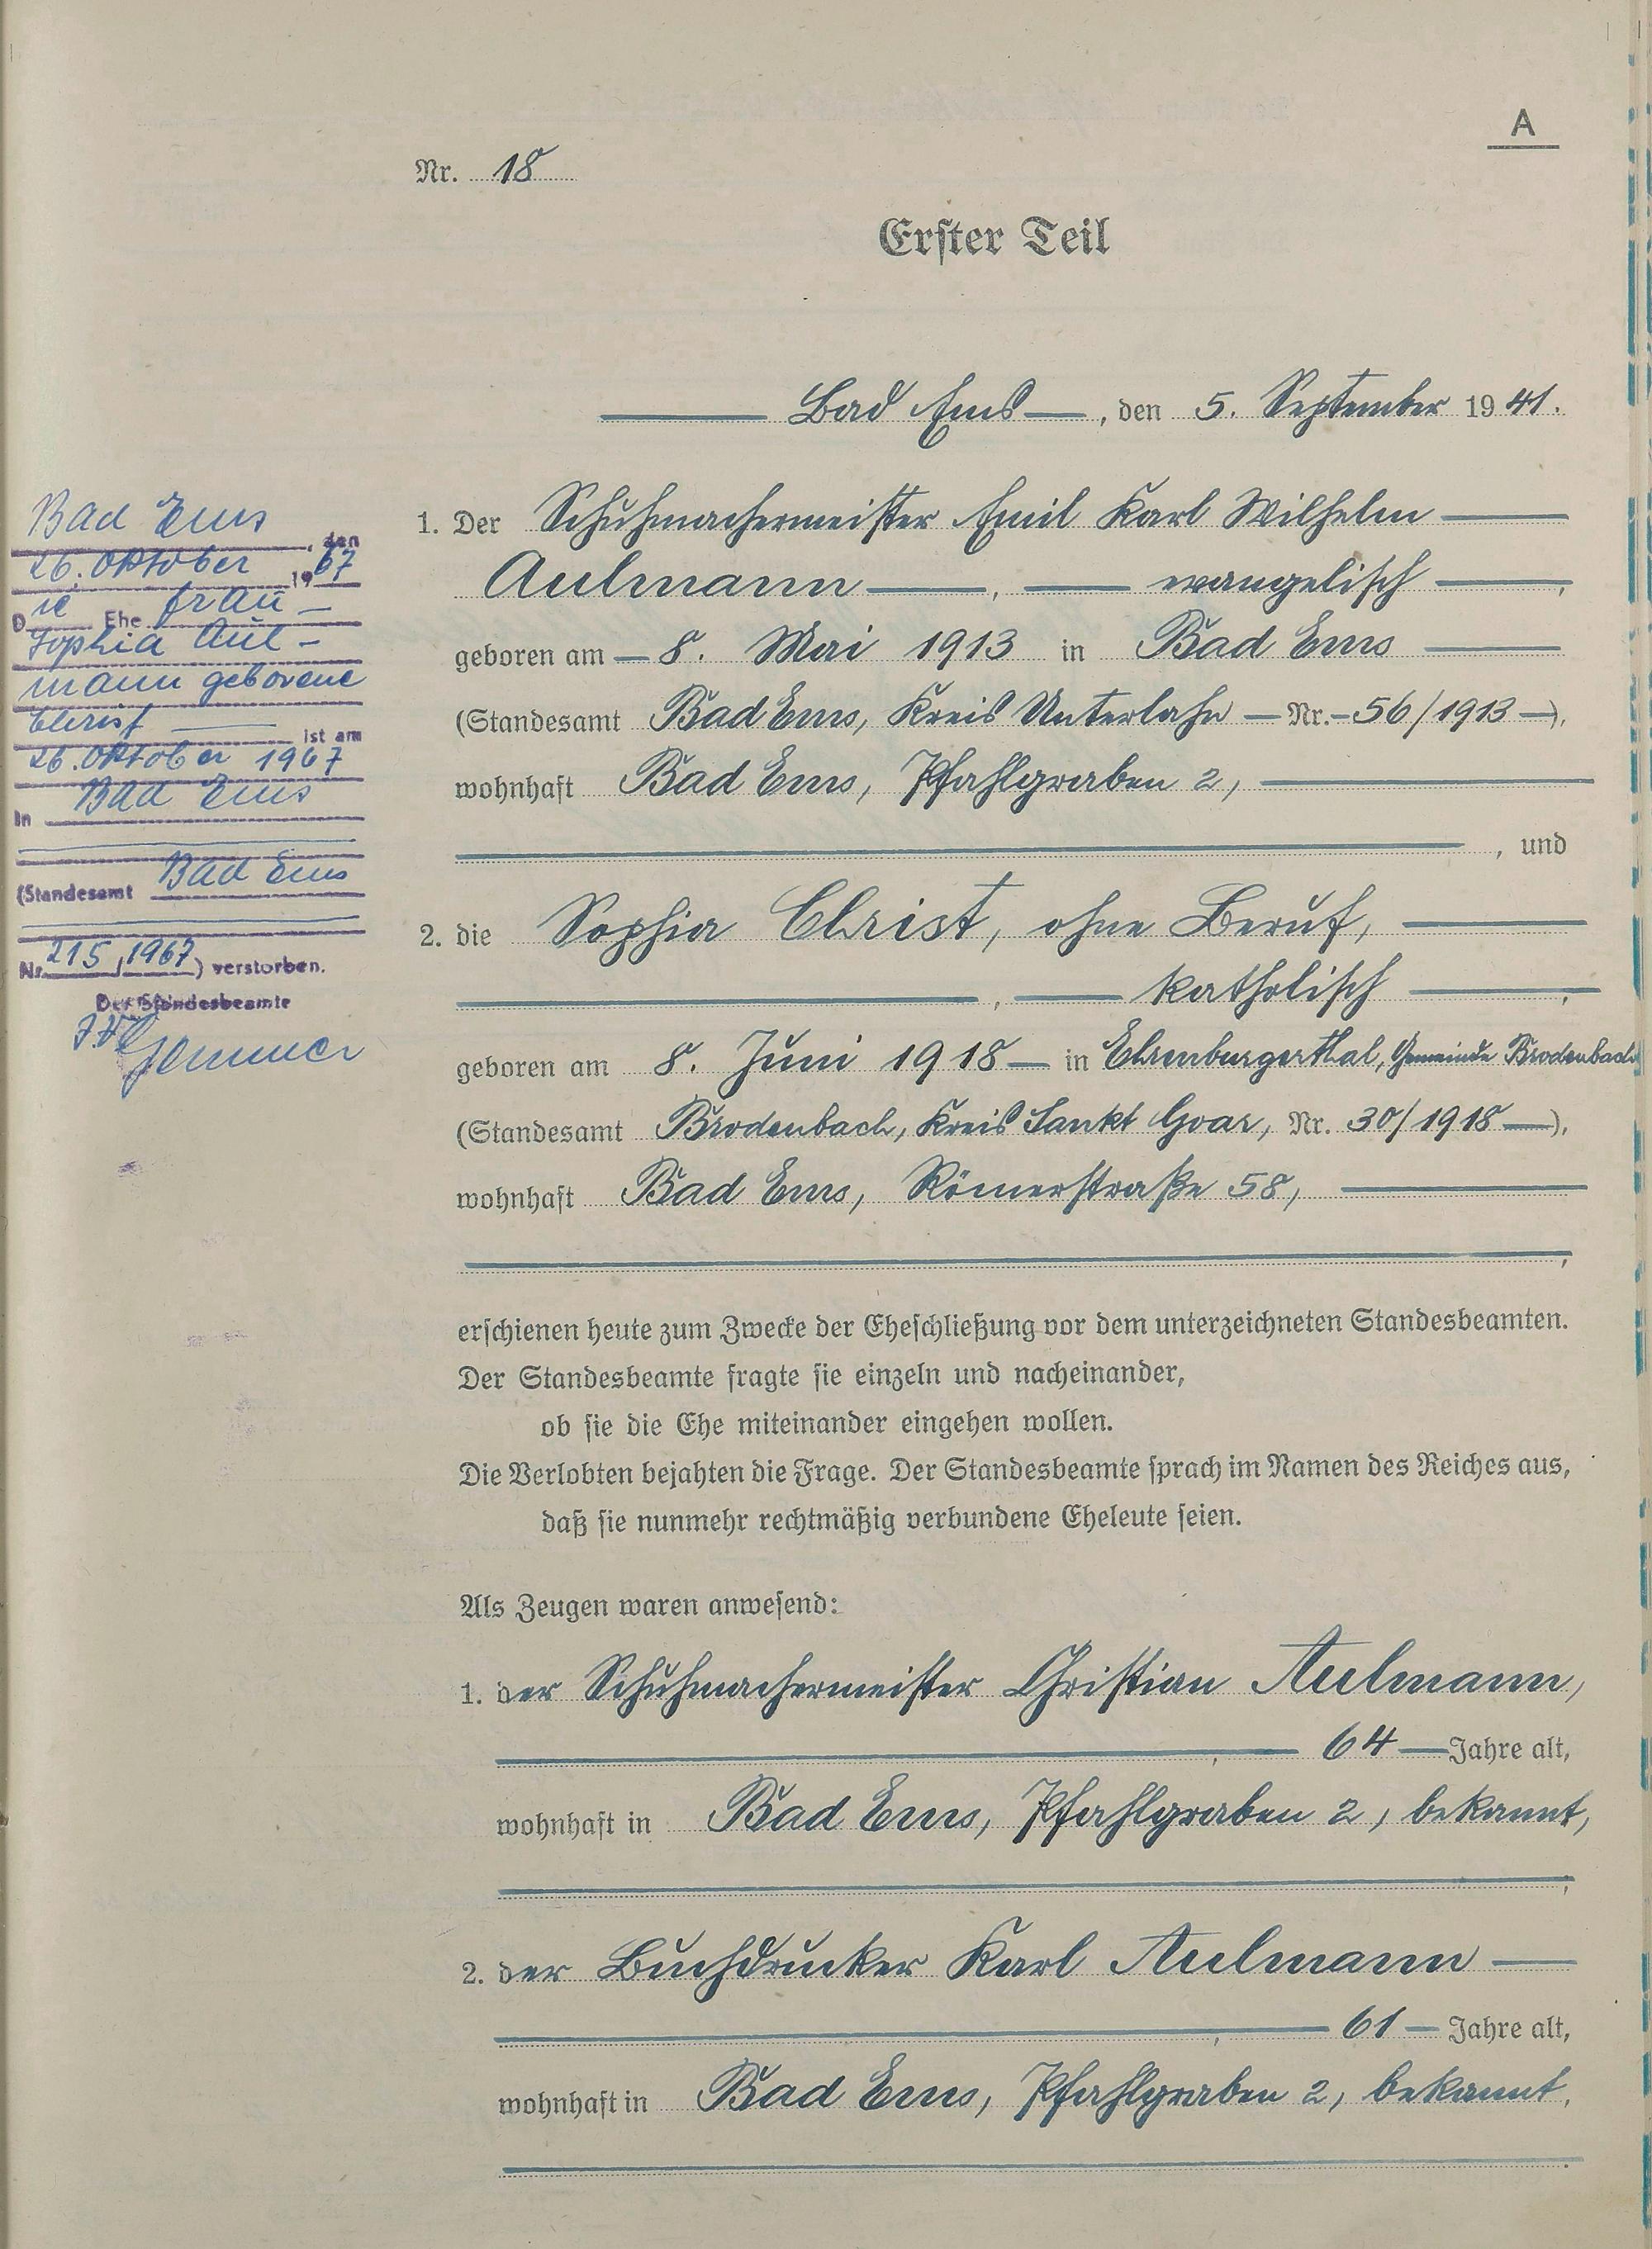 A
Nr. 18
Erster Teil
Bad Ems, den 5. September 1941.
1. Der Schuhmachermeister Emil Karl Wilhelm
Aulmann, evangelisch,
geboren am 8. Mai 1913 in Bad Ems
(Standesamt Bad Ems, Kreis Unterlahn Nr. 56/1913),
wohnhaft Bad Ems, Pfahlgraben 2,
, und
2. die Sophia Christ, ohne Beruf,
, katholisch,
geboren am 8. Juni 1918 in Ehrenburgerthal, Gemeinde Brodenbach
(Standesamt Brodenbach, Kreis Sankt Goar, Nr. 30/1918),
wohnhaft Bad Ems, Römerstraße 58,
,
erschienen heute zum Zwecke der Eheschließung vor dem unterzeichneten Standesbeamten.
Der Standesbeamte fragte sie einzeln und nacheinander,
ob sie die Ehe miteinander eingehen wollen.
Die Verlobten bejahten die Frage. Der Standesbeamte sprach im Namen des Reiches aus,
daß sie nunmehr rechtmäßig verbundene Eheleute seien.
Als Zeugen waren anwesend:
1. der Schuhmachermeister Christian Aulmann,
, 64 Jahre alt,
wohnhaft in Bad Ems, Pfahlgraben 2, bekannt,
,
2. der Buchdrucker Karl Aulmann
, 61 Jahre alt,
wohnhaft in Bad Ems, Pfahlgraben 2, bekannt.
.
Bad Ems, den
26. Oktober 1967
Die Ehefrau
Sophia Aul-
mann geborene
Christ ist am
26. Oktober 1967
in Bad Ems
(Standesamt Bad Ems
Nr. 215/1967) verstorben.
Der Standesbeamte